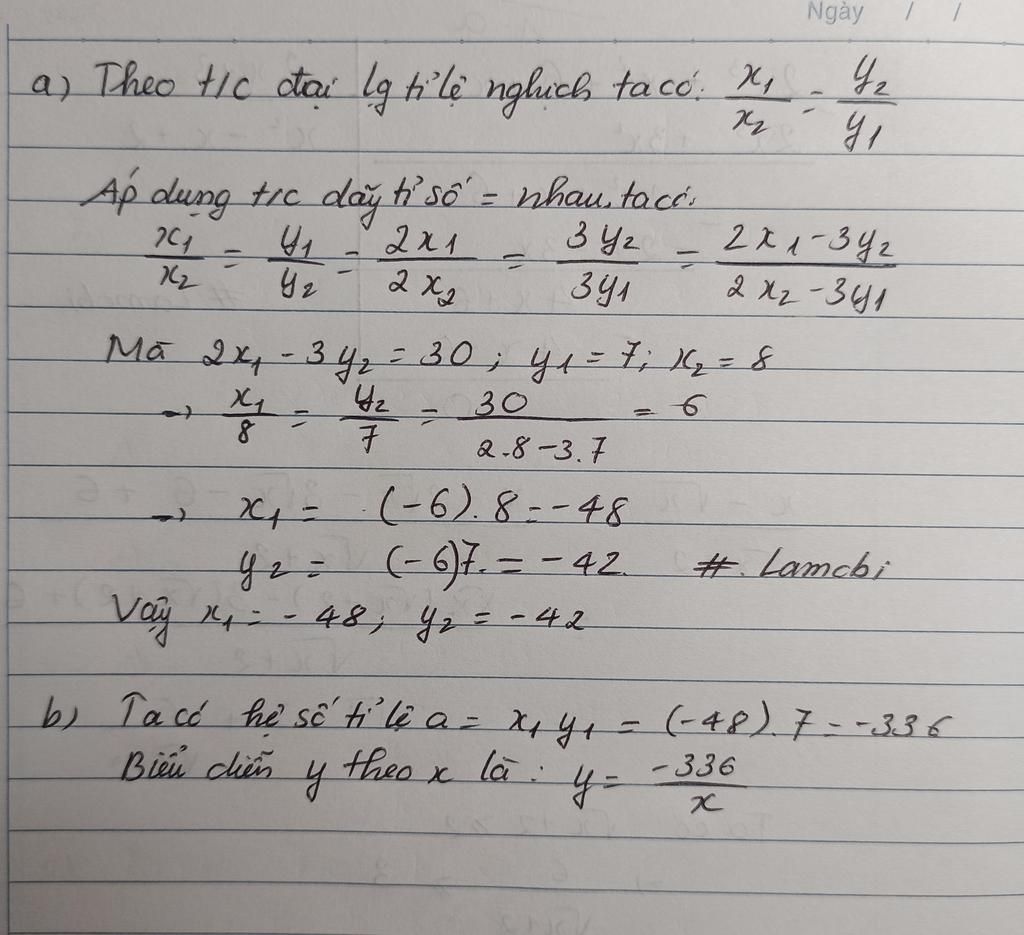 Ngày / /
a) Theo t/c đại lg tỉ lệ nghịch ta có: x₁/x₂ = y₂/y₁
Áp dụng t/c dãy tỉ số = nhau, ta có:
x₁/x₂ = y₁/y₂ = 2x₁/2x₂ = 3y₂/3y₁ = (2x₁-3y₂)/(2x₂-3y₁)
Mà 2x₁ - 3y₂ = 30 ; y₁ = 7; x₂ = 8
→ x₁/8 = y₂/7 = 30/(2.8-3.7) = 6
→ x₁ = (-6).8 = -48
y₂ = (-6)7. = -42. #. Lamchi
Vậy x₁ = -48; y₂ = -42
b) Ta có hệ số tỉ lệ a = x₁ y₁ = (-48).7 = -336
Biểu diễn y theo x là: y = -336/x